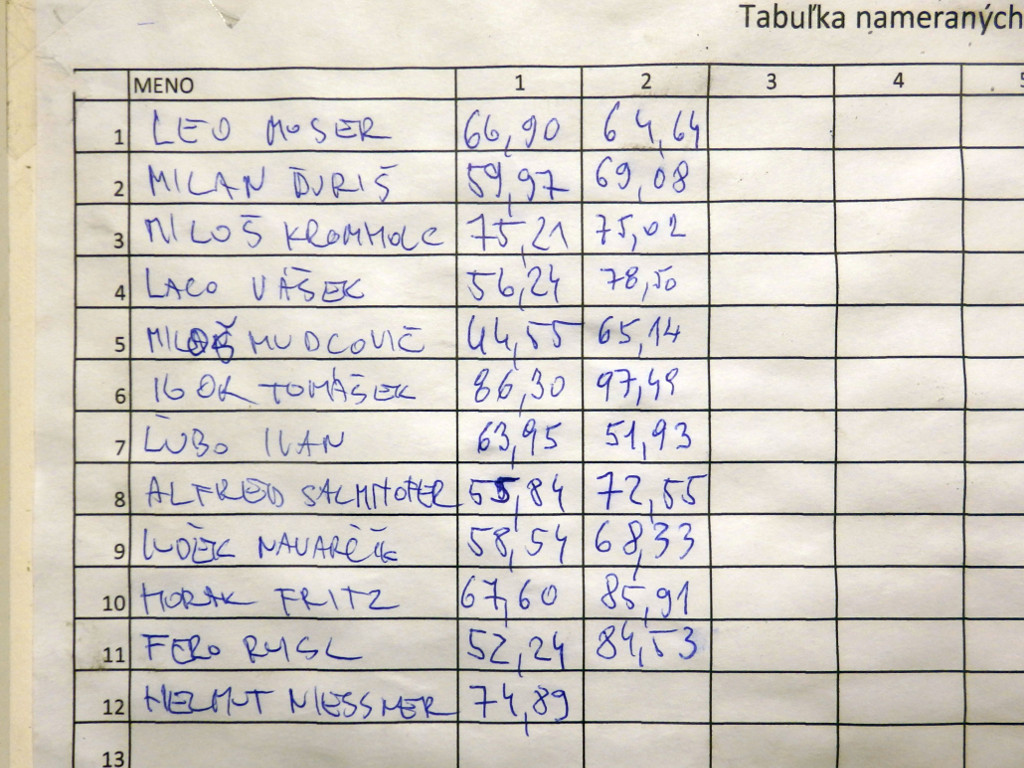 Tabuľka nameraných
MENO 1 2 3 4 5
1 LEO MOSER 66,90 64,64
2 MILAN ĎURIŠ 59,97 69,08
3 MILOŠ KROMHOLC 75,21 75,02
4 LACO VÁŠEK 56,24 78,50
5 MILOŠ MUDCOVIČ 44,55 65,14
6 IGOR TOMÁŠEK 86,30 97,49
7 ĽUBO IVAN 63,95 51,93
8 ALFRED SALMHOFER 55,84 72,55
9 LUDĚK NAVARČÍK 58,54 68,33
10 HORAK FRITZ 67,60 85,91
11 FERO RYSL 52,24 84,53
12 HELMUT NIESSNER 74,89
13